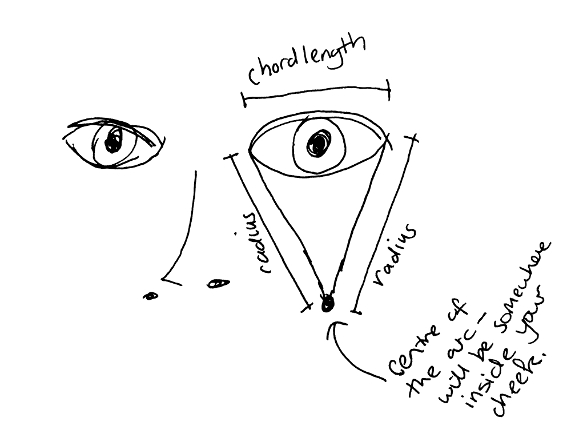 chord length
radius
radius
Centre of
the arc -
will be somewhere
inside your
cheek.